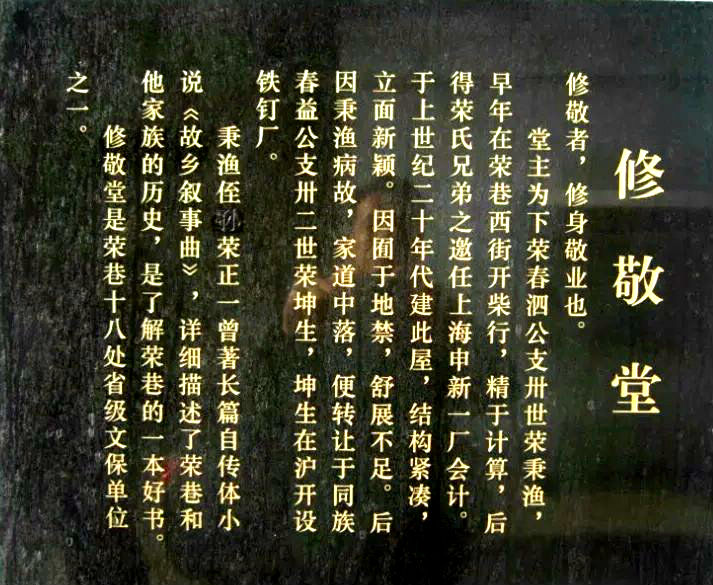 修敬堂
修敬者，修身敬业也。
堂主为下荣春泗公支卅世荣秉渔，
早年在荣巷西街开柴行，精于计算，后
得荣氏兄弟之邀任上海申新一厂会计。
于上世纪二十年代建此屋，结构紧凑，
立面新颖。因囿于地禁，舒展不足。后
因秉渔病故，家道中落，便转让于同族
春益公支卅二世荣坤生，坤生在沪开设
铁钉厂。
秉渔侄孙荣正一曾著长篇自传体小
说《故乡叙事曲》，详细描述了荣巷和
他家族的历史，是了解荣巷的一本好书。
修敬堂是荣巷十八处省级文保单位
之一。